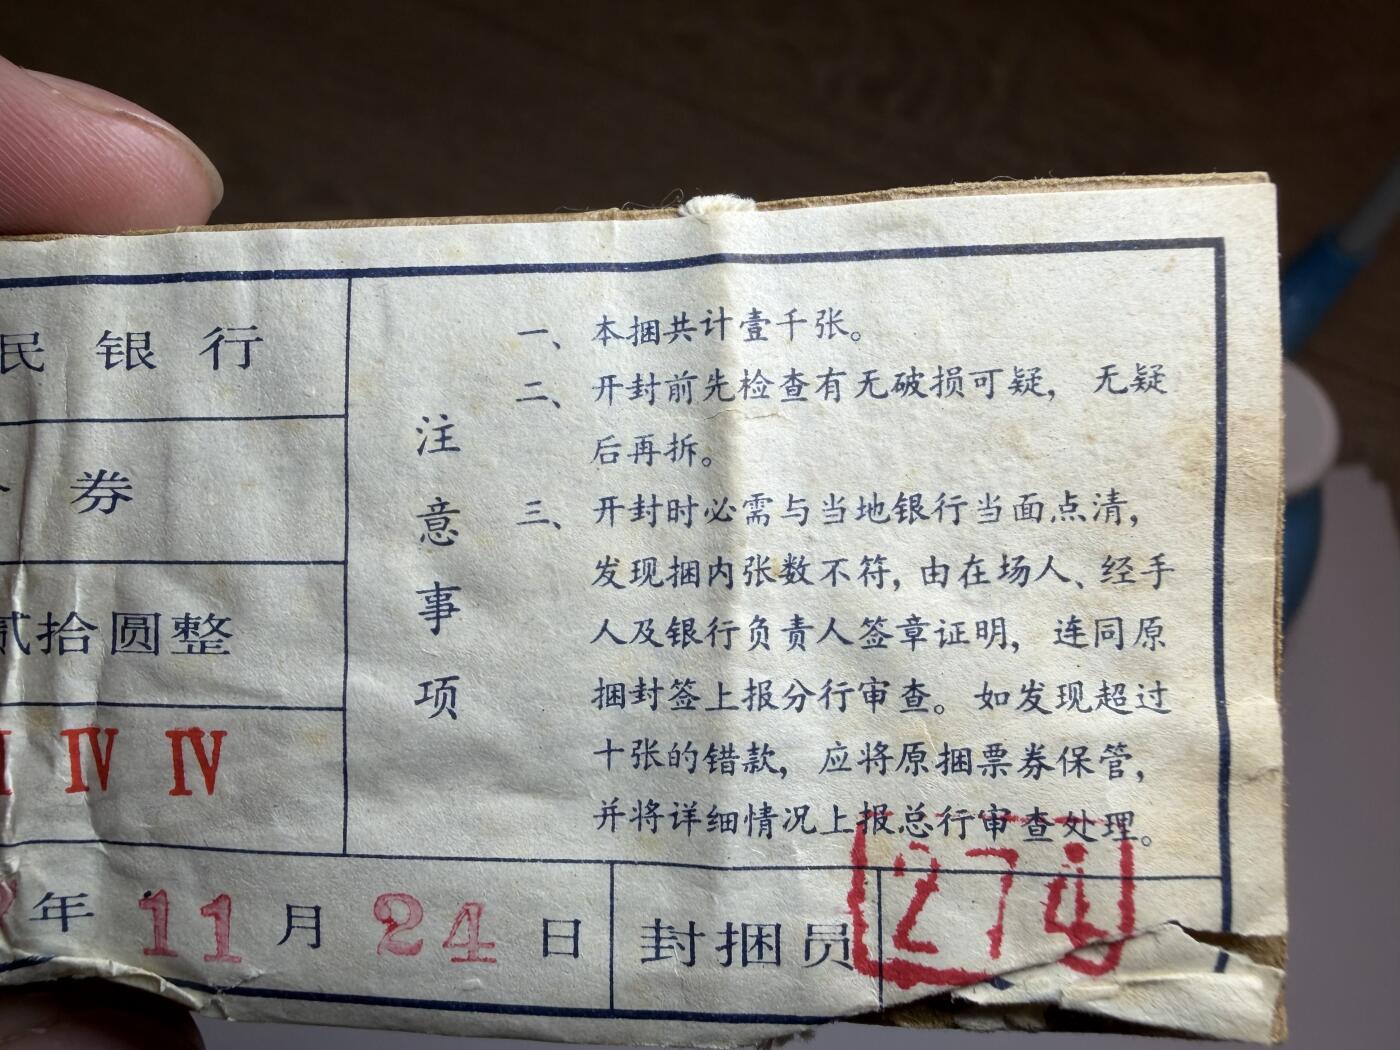 民银行
券
贰拾圆整
IV IV
注意事项
一、本捆共计壹千张。
二、开封前先检查有无破损可疑，无疑
后再拆。
三、开封时必需与当地银行当面点清，
发现捆内张数不符，由在场人、经手
人及银行负责人签章证明，连同原
捆封签上报分行审查。如发现超过
十张的错款，应将原捆票券保管，
并将详细情况上报总行审查处理。
年 11 月 24 日
封捆员
274